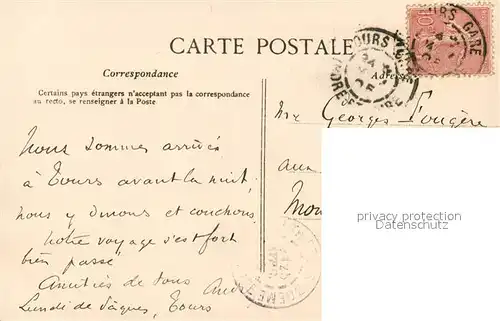 CARTE POSTALE
Correspondance
Certains pays étrangers n'acceptant pas la correspondance
au recto, se renseigner à la Poste
Nous sommes arrivés
à Tours avant la nuit,
nous y dinons et couchons,
notre voyage s'est fort
bien passé
Amitiés de tous
Lundi de Pâques, Tours
TOURS GARE
Mr Georges Fougère
aux
privacy protection
Datenschutz